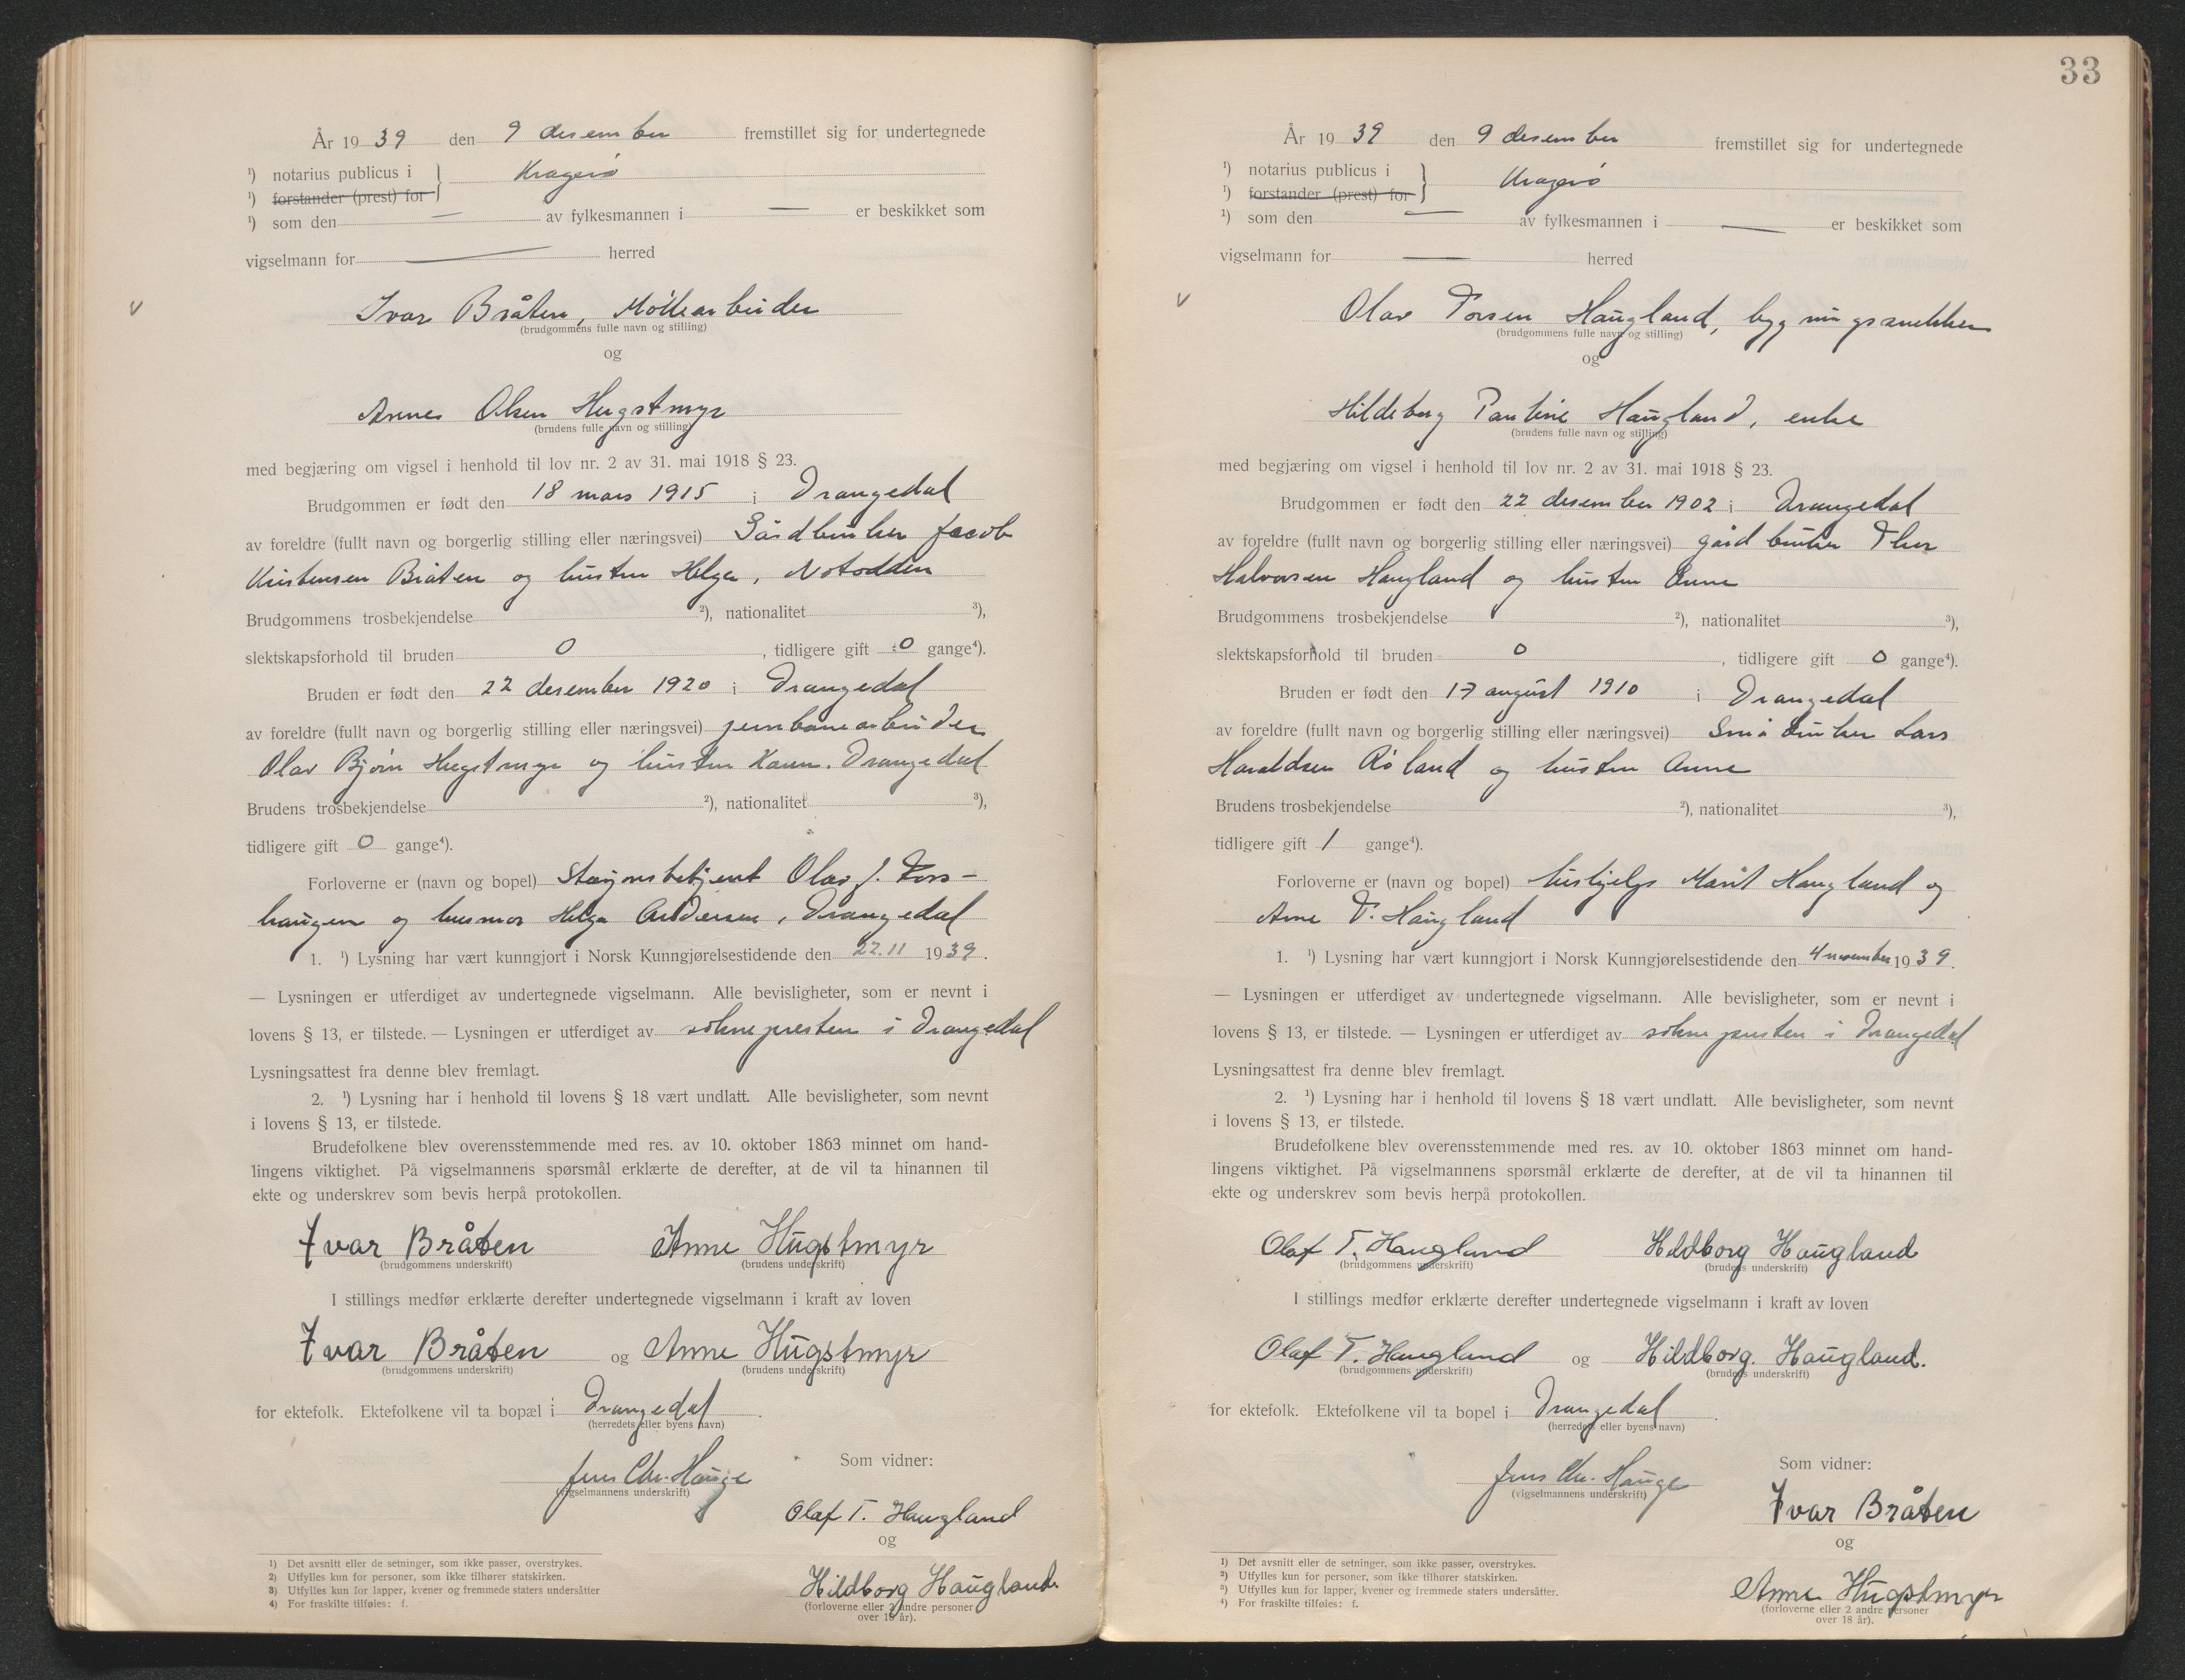 År 19 39 den 9 desember fremstillet sig for undertegnede
¹) notarius publicus i } Kragerø
¹) forstander (prest) for
¹) som den — av fylkesmannen i — er beskikket som
vigselmann for — herred
Ivar Bråten, Møllearbeider
(brudgommens fulle navn og stilling)
og
Olsen Hugstmyr
(brudens fulle navn og stilling)
med begjæring om vigsel i henhold til lov nr. 2 av 31. mai 1918 § 23.
Brudgommen er født den 18 mars 1915 i Drangedal
av foreldre (fullt navn og borgerlig stilling eller næringsvei) Gårdbruker Jacob
Kristensen Bråten og hustru Helga, Notodden
Brudgommens trosbekjendelse ²), nationalitet ³),
slektskapsforhold til bruden 0, tidligere gift 0 gange⁴).
Bruden er født den 22 desember 1920 i Drangedal
av foreldre (fullt navn og borgerlig stilling eller næringsvei) jernbanearbeider
Olav Bjørn Hugstmyr og hustru Karen. Drangedal
Brudens trosbekjendelse ²), nationalitet ³),
tidligere gift 0 gange⁴).
Forloverne er (navn og bopel) Stasjonsbetjent Olav J. Tors-
haugen og husmor Helga Andersen, Drangedal
1. ¹) Lysning har vært kunngjort i Norsk Kunngjørelsestidende den 22.11 1939.
— Lysningen er utferdiget av undertegnede vigselmann. Alle bevisligheter, som er nevnt i
lovens § 13, er tilstede. — Lysningen er utferdiget av soknepresten i Drangedal
Lysningsattest fra denne blev fremlagt.
2. ¹) Lysning har i henhold til lovens § 18 vært undlatt. Alle bevisligheter, som nevnt
i lovens § 13, er tilstede.
Brudefolkene blev overensstemmende med res. av 10. oktober 1863 minnet om hand-
lingens viktighet. På vigselmannens spørsmål erklærte de derefter, at de vil ta hinannen til
ekte og underskrev som bevis herpå protokollen.
Ivar Bråten Anne Hugstmyr
(brudgommens underskrift) (brudens underskrift)
I stillings medfør erklærte derefter undertegnede vigselmann i kraft av loven
Ivar Bråten og Anne Hugstmyr
(brudgommens underskrift) (brudens underskrift)
for ektefolk. Ektefolkene vil ta bopæl i Drangedal.
(herredets eller byens navn)
Jens Chr. Hauge Som vidner:
(vigselmannens underskrift)
Olaf T. Haugland
og
Hildborg Haugland.
(forloverne eller 2 andre personer
over 18 år).
1) Det avsnitt eller de setninger, som ikke passer, overstrykes.
2) Utfylles kun for personer, som ikke tilhører statskirken.
3) Utfylles kun for lapper, kvener og fremmede staters undersåtter
4) For fraskilte tilføies: f.
33
År 19 39 den 9 desember fremstillet sig for undertegnede
¹) notarius publicus i } Kragerø
¹) forstander (prest) for
¹) som den — av fylkesmannen i — er beskikket som
vigselmann for — herred
Olav Torsen Haugland, bygningssnekker
(brudgommens fulle navn og stilling)
og
Hildeborg Pauline Haugland, enke
(brudens fulle navn og stilling)
med begjæring om vigsel i henhold til lov nr. 2 av 31. mai 1918 § 23.
Brudgommen er født den 22 desember 1902 i Drangedal
av foreldre (fullt navn og borgerlig stilling eller næringsvei) gårdbruker Thor
Halvorsen Haugland og hustru Anne
Brudgommens trosbekjendelse ²), nationalitet ³),
slektskapsforhold til bruden 0, tidligere gift 0 gange⁴).
Bruden er født den 17 august 1910 i Drangedal
av foreldre (fullt navn og borgerlig stilling eller næringsvei) Småbruker Lars
Haraldsen Røland og hustru Anne
Brudens trosbekjendelse ²), nationalitet ³),
tidligere gift 1 gange⁴).
Forloverne er (navn og bopel) hushjelp Marit Haugland og
Arne T. Haugland
1. ¹) Lysning har vært kunngjort i Norsk Kunngjørelsestidende den 4 november 1939.
— Lysningen er utferdiget av undertegnede vigselmann. Alle bevisligheter, som er nevnt i
lovens § 13, er tilstede. — Lysningen er utferdiget av soknepresten i Drangedal
Lysningsattest fra denne blev fremlagt.
2. ¹) Lysning har i henhold til lovens § 18 vært undlatt. Alle bevisligheter, som nevnt
i lovens § 13, er tilstede.
Brudefolkene blev overensstemmende med res. av 10. oktober 1863 minnet om hand-
lingens viktighet. På vigselmannens spørsmål erklærte de derefter, at de vil ta hinannen til
ekte og underskrev som bevis herpå protokollen.
Olaf T. Haugland Hildborg Haugland
(brudgommens underskrift) (brudens underskrift)
I stillings medfør erklærte derefter undertegnede vigselmann i kraft av loven
Olaf T. Haugland og Hildborg. Haugland.
(brudgommens underskrift) (brudens underskrift)
for ektefolk. Ektefolkene vil ta bopel i Drangedal.
(herredets eller byens navn)
Jens Chr. Hauge Som vidner:
(vigselmannens underskrift)
Ivar Bråten
og
Anne Hugstmyr
(forloverne eller 2 andre personer
over 18 år).
1) Det avsnitt eller de setninger, som ikke passer, overstrykes.
2) Utfylles kun for personer, som ikke tilhører statskirken.
3) Utfylles kun for lapper, kvener og fremmede staters undersåtter.
4) For fraskilte tilføies: f.